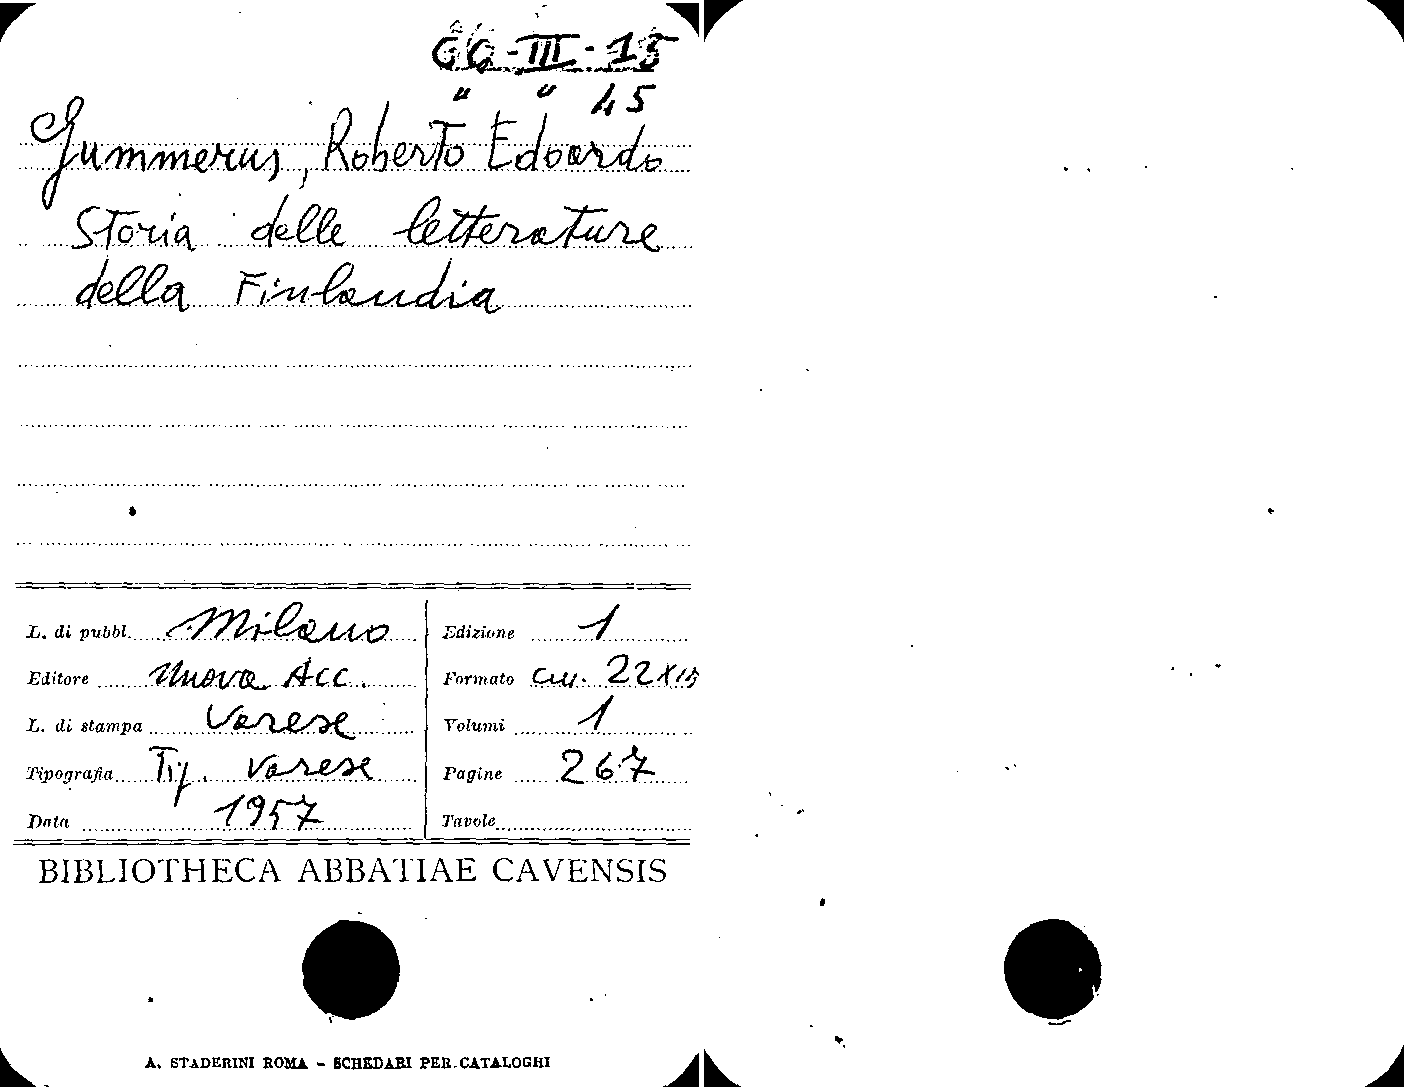 GG-III-15
" " 45
Gummerus, Roberto Edoardo
Storia delle letterature
della Finlandia
L. di pubbl. Milano
Editore Nuova Acc.
L. di stampa Varese
Tipografia Tip. Varese
Data 1957
Edizione 1
Formato cm. 22x15
Volumi 1
Pagine 267
Tavole
BIBLIOTHECA ABBATIAE CAVENSIS
A. STADERINI ROMA - SCHEDARI PER CATALOGHI